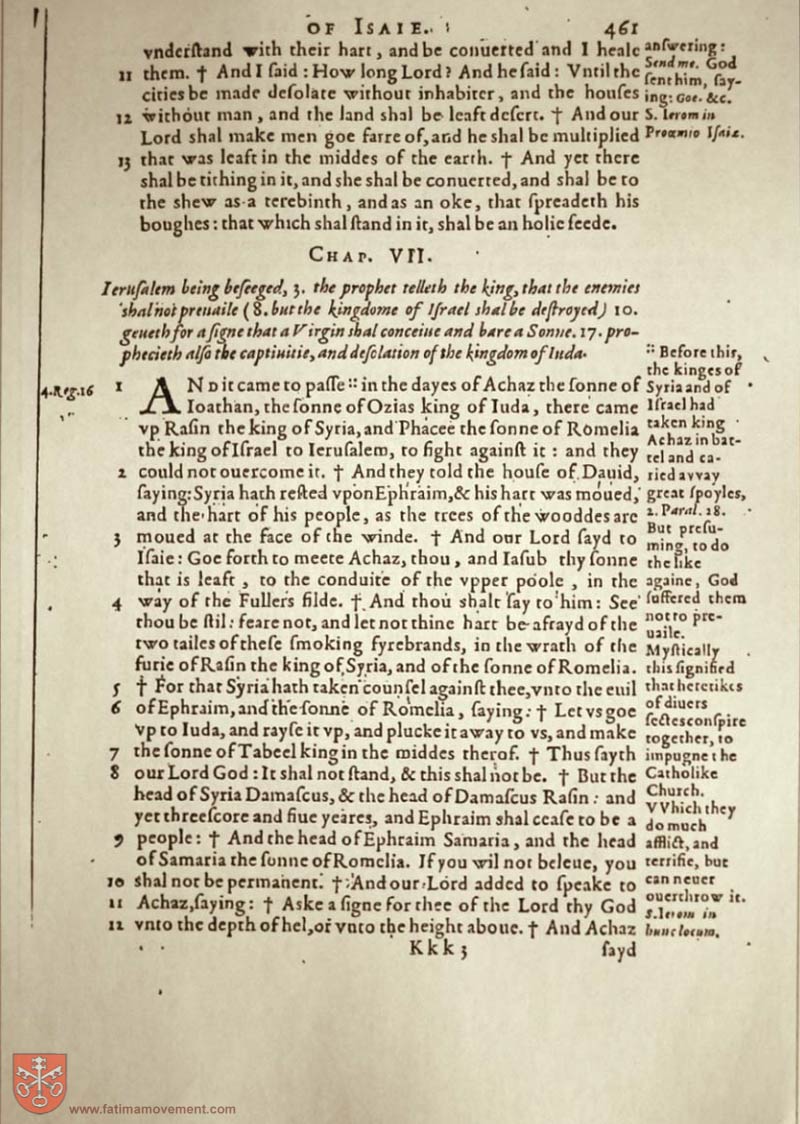 OF ISAIE. 461
vnderſtand with their hart, and be conuerted and I heale
11 them. † And I ſaid : How long Lord? And he ſaid : Vntil the
cities be made deſolate without inhabiter, and the houſes
12 without man, and the land shal be leaft deſert. † And our
Lord shal make men goe farre of, and he shal be multiplied
13 that was leaft in the middes of the earth. † And yet there
shal be tithing in it, and she shal be conuerted, and shal be to
the shew as a terebinth, and as an oke, that ſpreadeth his
boughes : that which shal ſtand in it, shal be an holie ſeede.
anſwering:
Send me. God
ſent him, ſay-
ing: Goe. &c.
S. Ierom in
Proœmio Iſaiæ.
CHAP. VII.
Ieruſalem being beſeeged, 3. the prophet telleth the king, that the enemies
shal not preuaile (8. but the kingdome of Iſrael shal be deſtroyed) 10.
geueth for a ſigne that a Virgin shal conceiue and bare a Sonne. 17. pro-
phecieth alſo the captiuitie, and deſolation of the kingdom of Iuda.
4. Reg. 16
1 AND it came to paſſe :: in the dayes of Achaz the ſonne of
Ioathan, the ſonne of Ozias king of Iuda, there came
vp Raſin the king of Syria, and Phacee the ſonne of Romelia
the king of Iſrael to Ieruſalem, to fight againſt it : and they
2 could not ouercome it. † And they told the houſe of Dauid,
ſaying: Syria hath reſted vpon Ephraim, & his hart was moued,
and the hart of his people, as the trees of the wooddes are
3 moued at the face of the winde. † And our Lord ſayd to
Iſaie : Goe forth to meete Achaz, thou, and Iaſub thy ſonne
that is leaft, to the conduite of the vpper poole, in the
4 way of the Fullers filde. † And thou shalt ſay to him : See
thou be ſtil : feare not, and let not thine hart be afrayd of the
two tailes of theſe ſmoking fyrebrands, in the wrath of the
furie of Raſin the king of Syria, and of the ſonne of Romelia.
5 † For that Syria hath taken counſel againſt thee, vnto the euil
6 of Ephraim, and the ſonne of Romelia, ſaying : † Let vs goe
vp to Iuda, and rayſe it vp, and plucke it away to vs, and make
7 the ſonne of Tabeel king in the middes therof. † Thus ſayth
8 our Lord God : It shal not ſtand, & this shal not be. † But the
head of Syria Damaſcus, & the head of Damaſcus Raſin : and
yet threeſcore and fiue yeares, and Ephraim shal ceaſe to be a
9 people : † And the head of Ephraim Samaria, and the head
of Samaria the ſonne of Romelia. If you wil not beleue, you
10 shal not be permanent. † And our Lord added to ſpeake to
11 Achaz, ſaying : † Aske a ſigne for thee of the Lord thy God
12 vnto the depth of hel, or vnto the height aboue. † And Achaz
Kkk 3 ſayd
:: Before this,
the kinges of
Syria and of
Iſrael had
taken king
Achaz in bat-
tel and ca-
ried avvay
great ſpoyles,
2. Paral. 28.
But preſu-
ming, to do
the like
againe, God
ſuffered them
not to pre-
uaile.
Myſtically
this ſignified
that heretikes
of diuers
ſectes conſpire
together, to
impugne the
Catholike
Church.
VVhich they
do much
afflict, and
terrifie, but
can neuer
ouerthrow it.
S. Ierom in
hunc locum.
www.fatimamovement.com